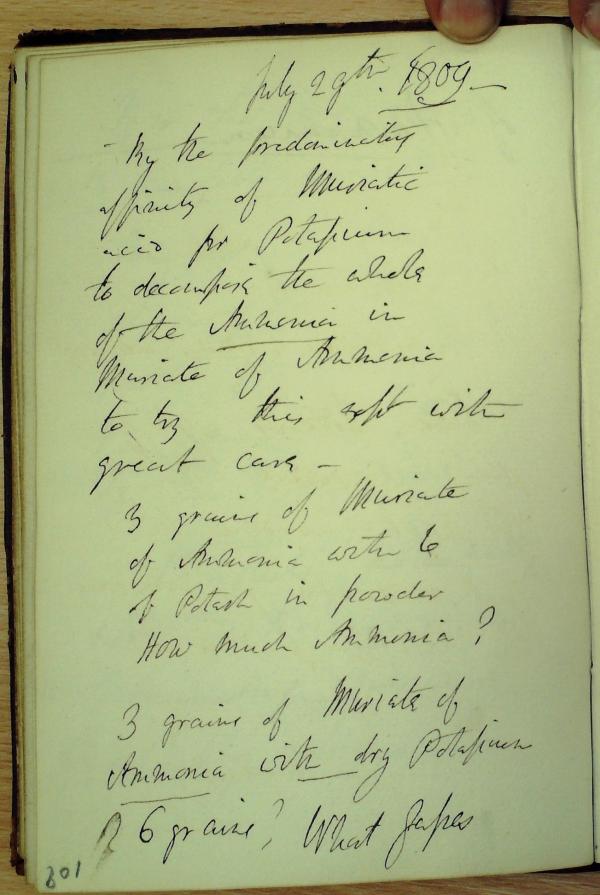 July 29th. 1809 -
- By the predominating
affinity of Muriatic
acid for Potassium
to decompose the whole
of the Ammonia in
Muriate of Ammonia
to try this expt with
great care -
3 grains of Muriate
of Ammonia with 6
of Potash in powder
How much Ammonia?
3 grains of Muriate of
Ammonia with dry Potassium
6 grains? What Gases
201